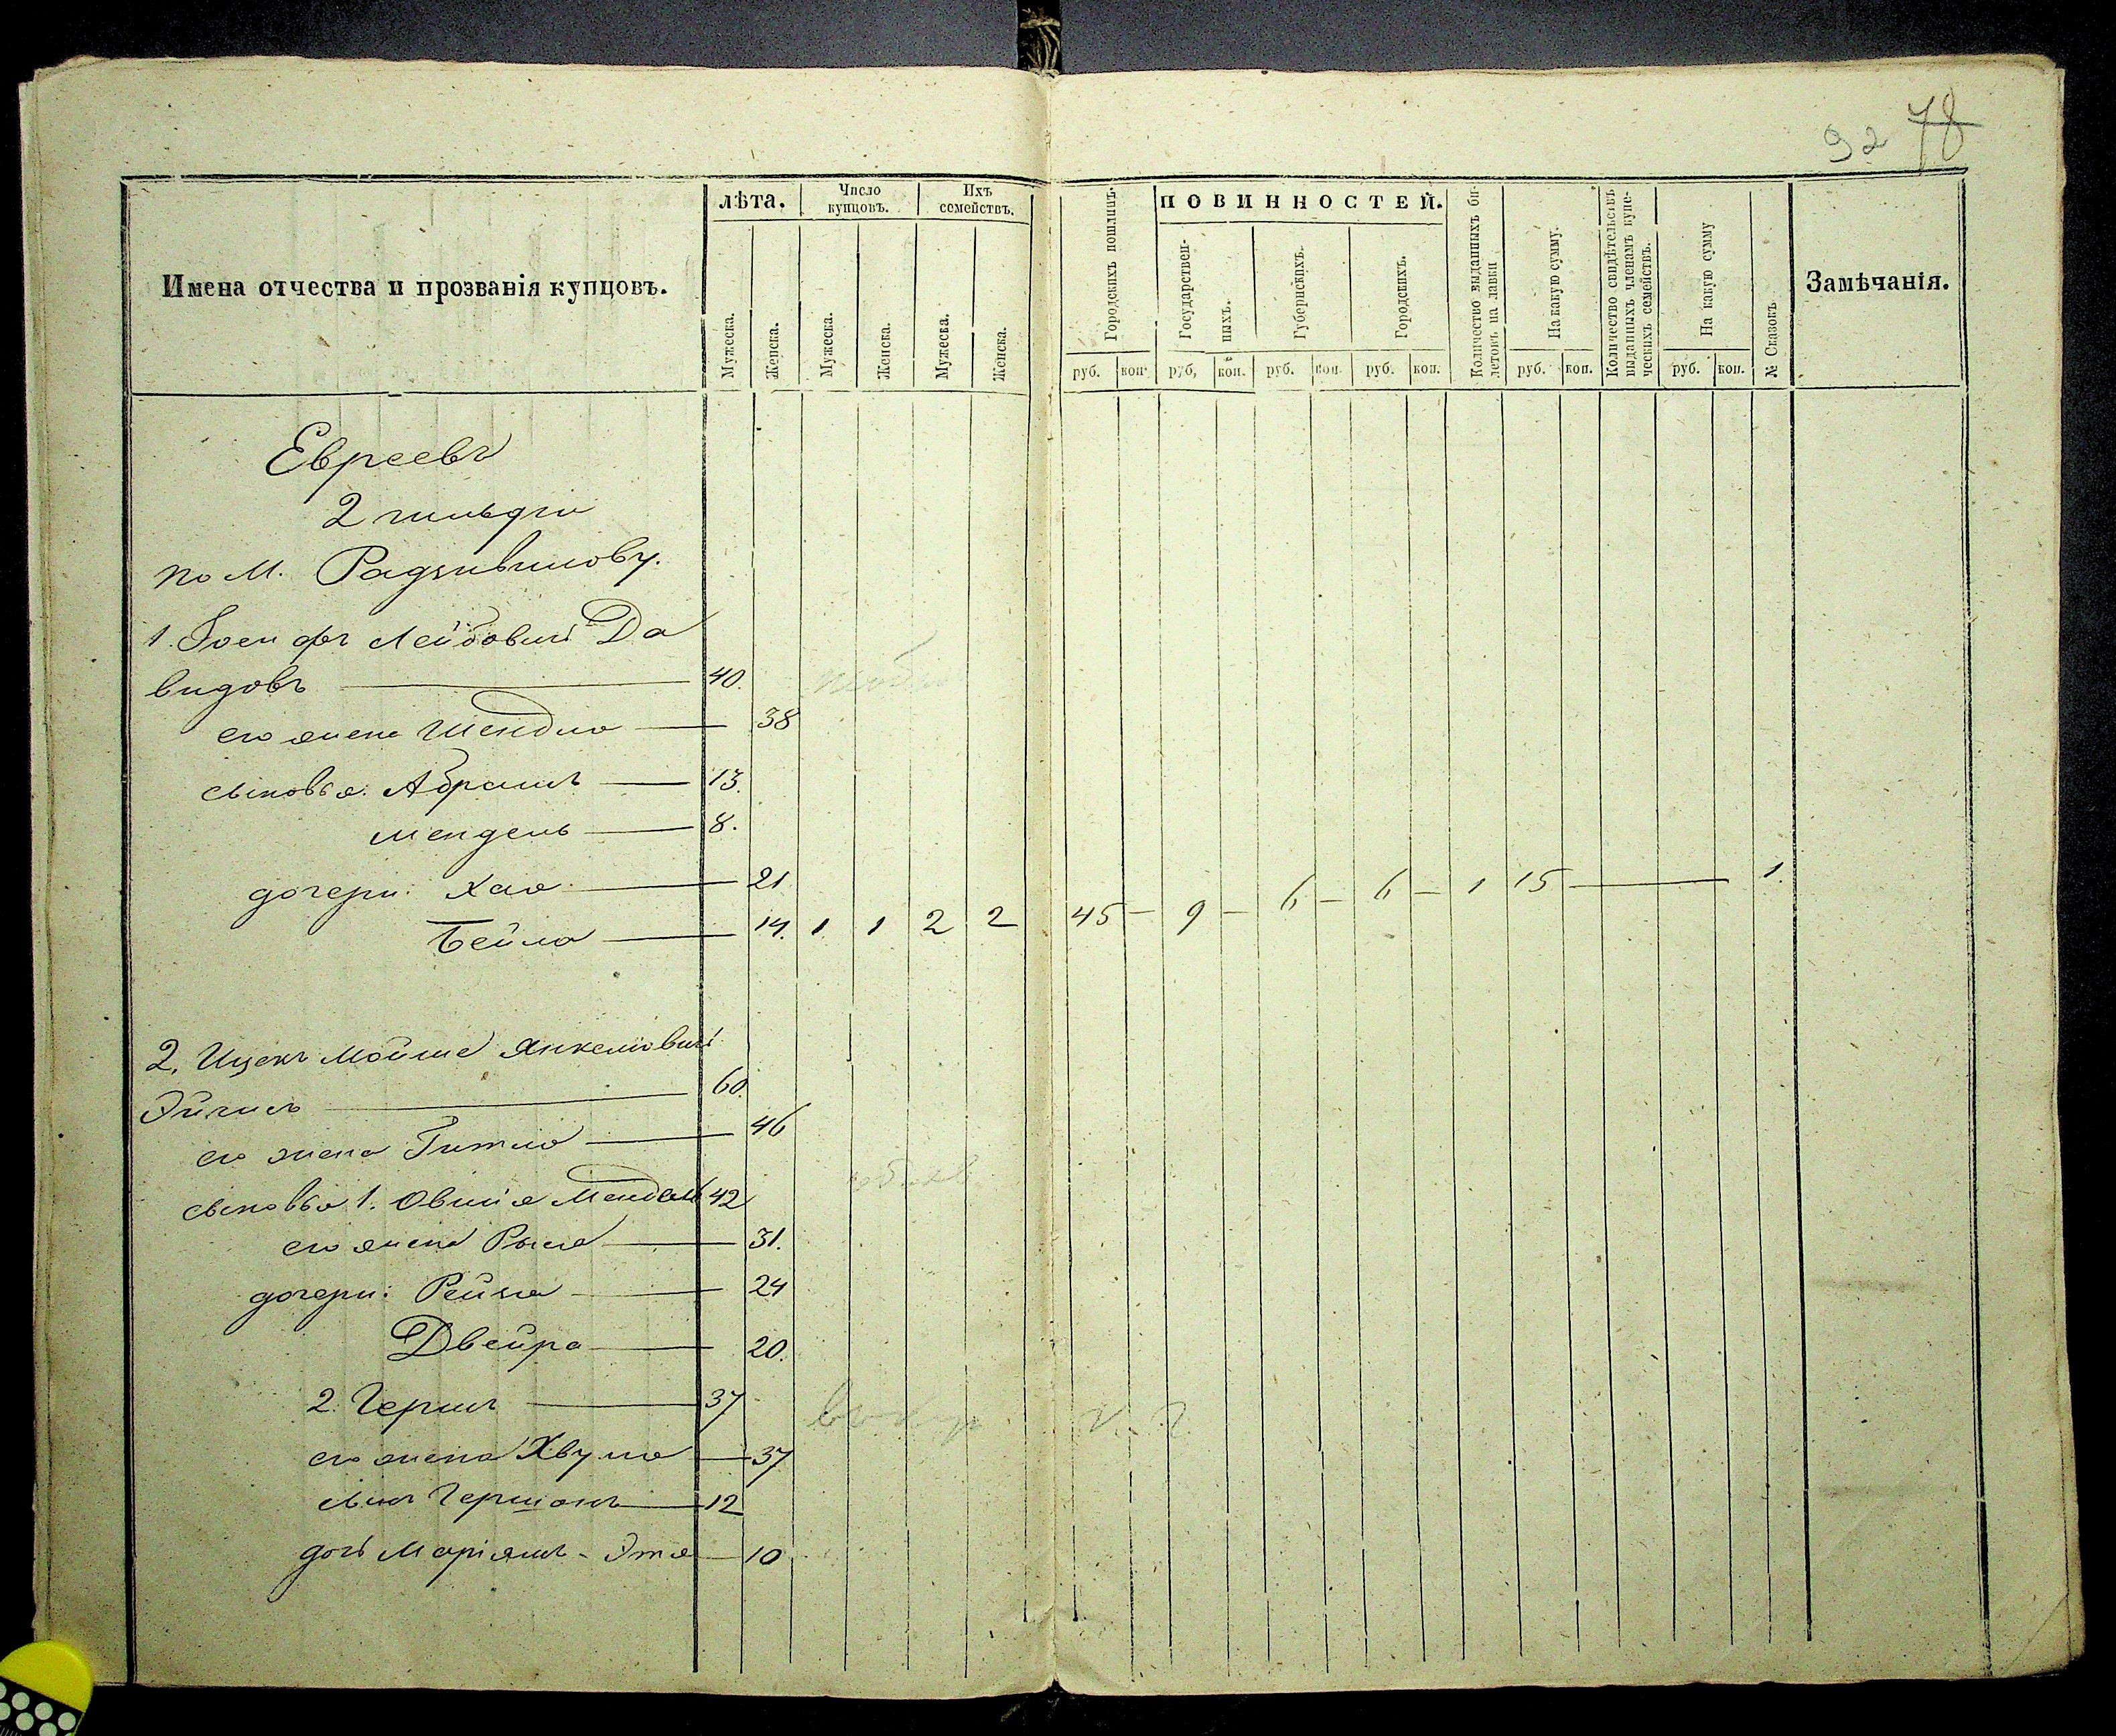 92 78
Имена отчества и прозванія купцовъ.
лѣта.
Мужеска.
Женска.
Число купцовъ.
Мужеска.
Женска.
Ихъ семействъ.
Мужеска.
Женска.
Городскихъ пошлинъ.
руб. коп.
ПОВИННОСТЕЙ.
Государственныхъ.
руб. коп.
Губернскихъ.
руб. коп.
Городскихъ.
руб. коп.
Количество выданныхъ би-
летовъ на лавки
На какую сумму.
руб. коп.
Количество свидѣтельствъ
выданныхъ членамъ купе-
ческихъ семействъ.
На какую сумму
руб. коп.
№ Сказокъ
Замѣчанія.
Евреевъ
2 гильдіи
по М. Радзивилову.
1. Іосифъ Лейбовичъ Да
видовъ — 40.
его жена Шендля — 38
сыновья: Абрамъ — 13.
Мендель — 8.
дочери: Хая — 21
Бейла — 14. 1 1 2 2 45 — 9 — 6 — 6 — 1 15 — 1.
2. Ицекъ Мойше Янкелiовичъ
60.
его жена Гитля — 46
сыновья 1. Овшія Мендель 42
его жена Рыся — 31.
дочери: Рейзя — 24
Двейра — 20.
2. Гершъ — 37
его жена — 37
сынъ Гершонъ — 12
дочь Маріямъ - Этя — 10